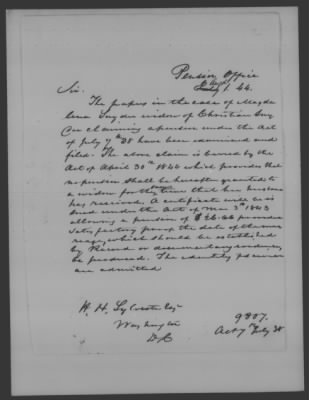 Pension Office
Augt 1. 44.
Sir.
The papers in the case of Magda
lena Snyder widow of Christian Sny
der claiming a pension under the Act
of July 7th 38 have been examined and
filed. The above claim is barred by the
Act of April 30th 1844 which provides that
no pension shall be hereafter granted to
a widow for the same time that her husband
has received. A certificate will be is
sued under the Act of Mar 3rd 1843
allowing a pension of $26.66 provided
satisfactory proof of the date of the mar
riage, which should be established
by Record or documentary evidence,
be produced. The identity and service
are admitted
W. H. Sylvester Esqr
Washington
D.C
9807.
Act 7 July 38